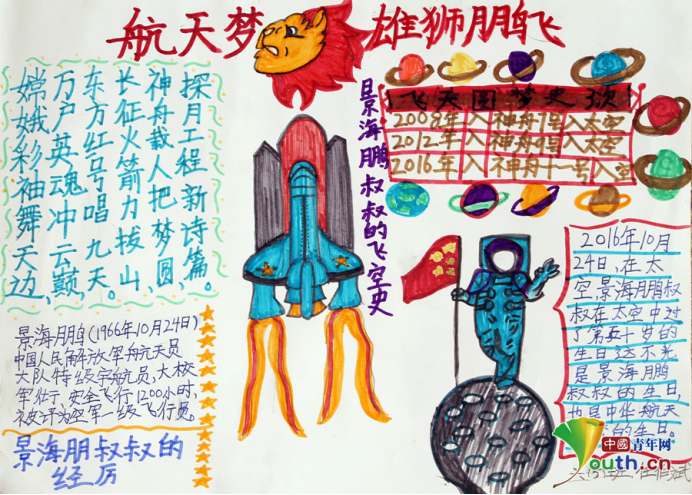 航天梦 雄狮朋鹏飞
探月工程新诗篇。
神舟载人把梦圆,
长征火箭力拔山,
东方红号唱九天。
万户英魂冲云巅,
嫦娥彩袖舞天边,
景海鹏叔叔的飞空史
飞天圆梦史
2008年入神舟7号入太空
2012年入神舟9号入太空
2016年入神舟十一号入空
景海鹏(1966年10月24日)
中国人民解放军航天员
大队特级宇航员,大校
军衔,安全飞行1200小时,
被评为空军一级飞行员。
景海朋叔叔的
经历
2016年10月
24日,在太
空景海鹏叔
叔在太空中过
了第五十岁的
生日这不光
是景海鹏
叔叔的生日,
也是中华航天
的生日。
中国青年网
Youth.cn